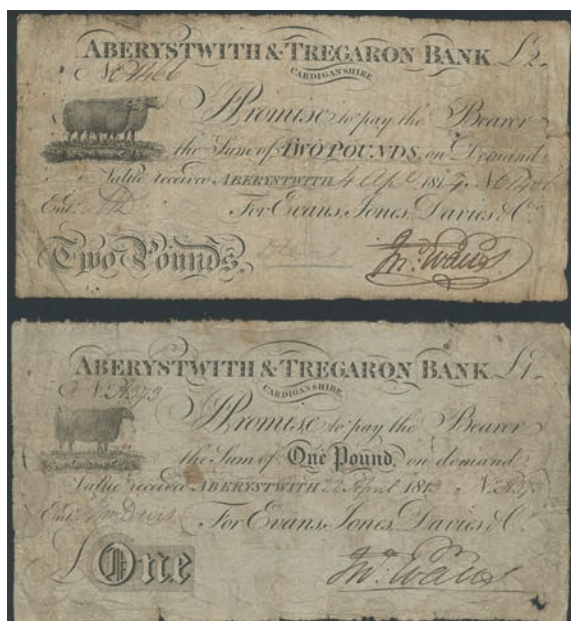 ABERYSTWITH & TREGARON BANK £2
CARDIGANSHIRE
I Promise to pay the Bearer
the Sum of TWO POUNDS, on Demand
Value received ABERYSTWITH 4 Apl 181
Ent.
For Evans, Jones, Davies & Co.
Two Pounds.
Jno. Evans
ABERYSTWITH & TREGARON BANK £1
CARDIGANSHIRE
No. A373
I Promise to pay the Bearer
the Sum of One Pound, on demand
Value received ABERYSTWITH 22 April 1813 No. A373
Ent.
For Evans, Jones, Davies & Co.
£ One
Jno. Evans